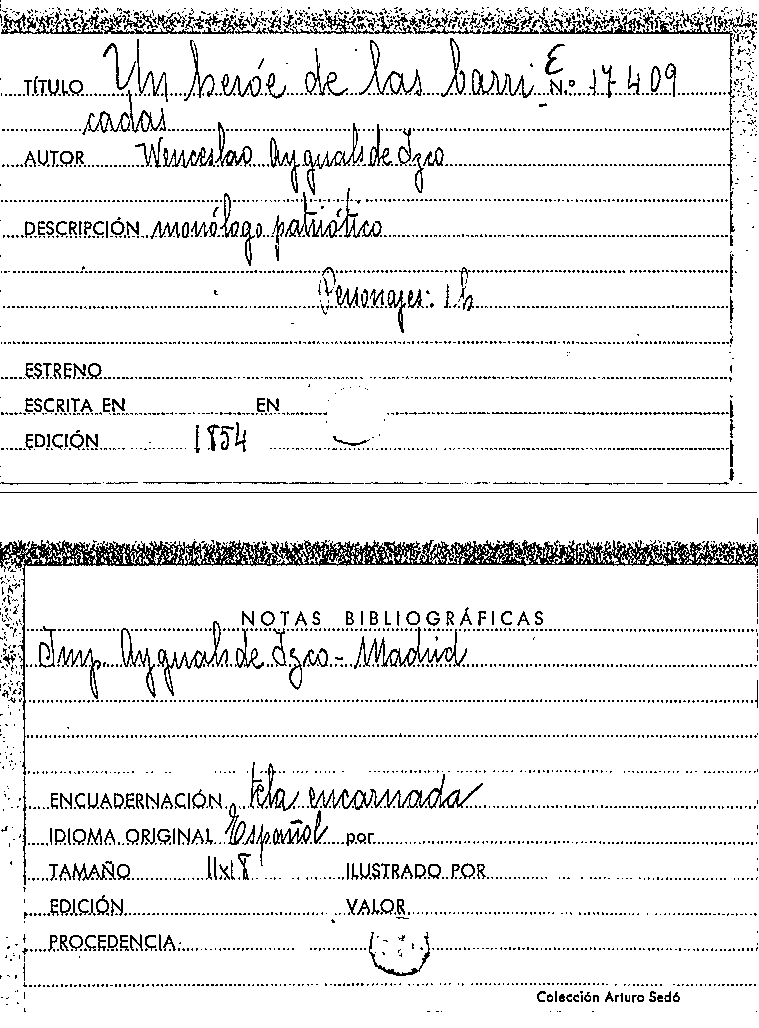 TÍTULO Un heróe de las barri E N.º 17409
cadas
AUTOR Wenceslao Ayguals de Izco
DESCRIPCIÓN monólogo patriótico
Personajes: 1 h
ESTRENO
ESCRITA EN EN
EDICIÓN 1854
NOTAS BIBLIOGRÁFICAS
Imp. Ayguals de Izco - Madrid
ENCUADERNACIÓN tela encarnada
IDIOMA ORIGINAL Español por
TAMAÑO 11x18 ILUSTRADO POR
EDICIÓN VALOR
PROCEDENCIA
Colección Arturo Sedó